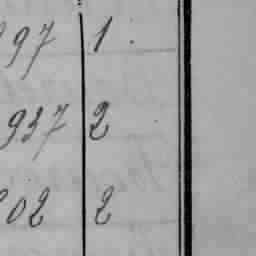 97 1
937 2
02 2